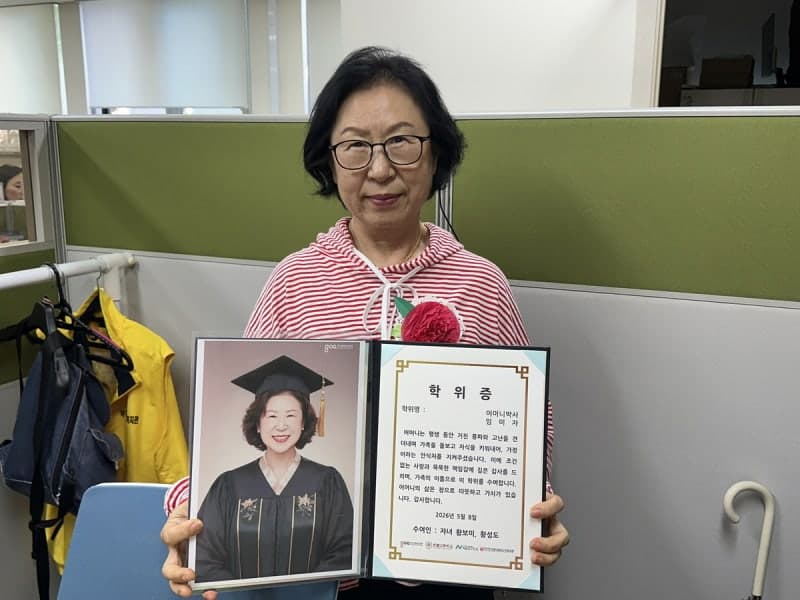 goo
학 위 증
학위명 : 어머니박사
임 미 자
어머니는 평생 동안 거친 풍파와 고난을 견
디내며 가족을 돌보고 자식을 키워내어, 가정
이라는 안식처를 지켜주셨습니다. 이에 조건
없는 사랑과 묵묵한 책임감에 깊은 감사를 드
리며, 가족의 이름으로 이 학위를 수여합니다.
어머니의 삶은 참으로 따뜻하고 가치가 있습니
다. 감사합니다.
2026년 5월 8일
수여인 : 자녀 황보미, 황성도